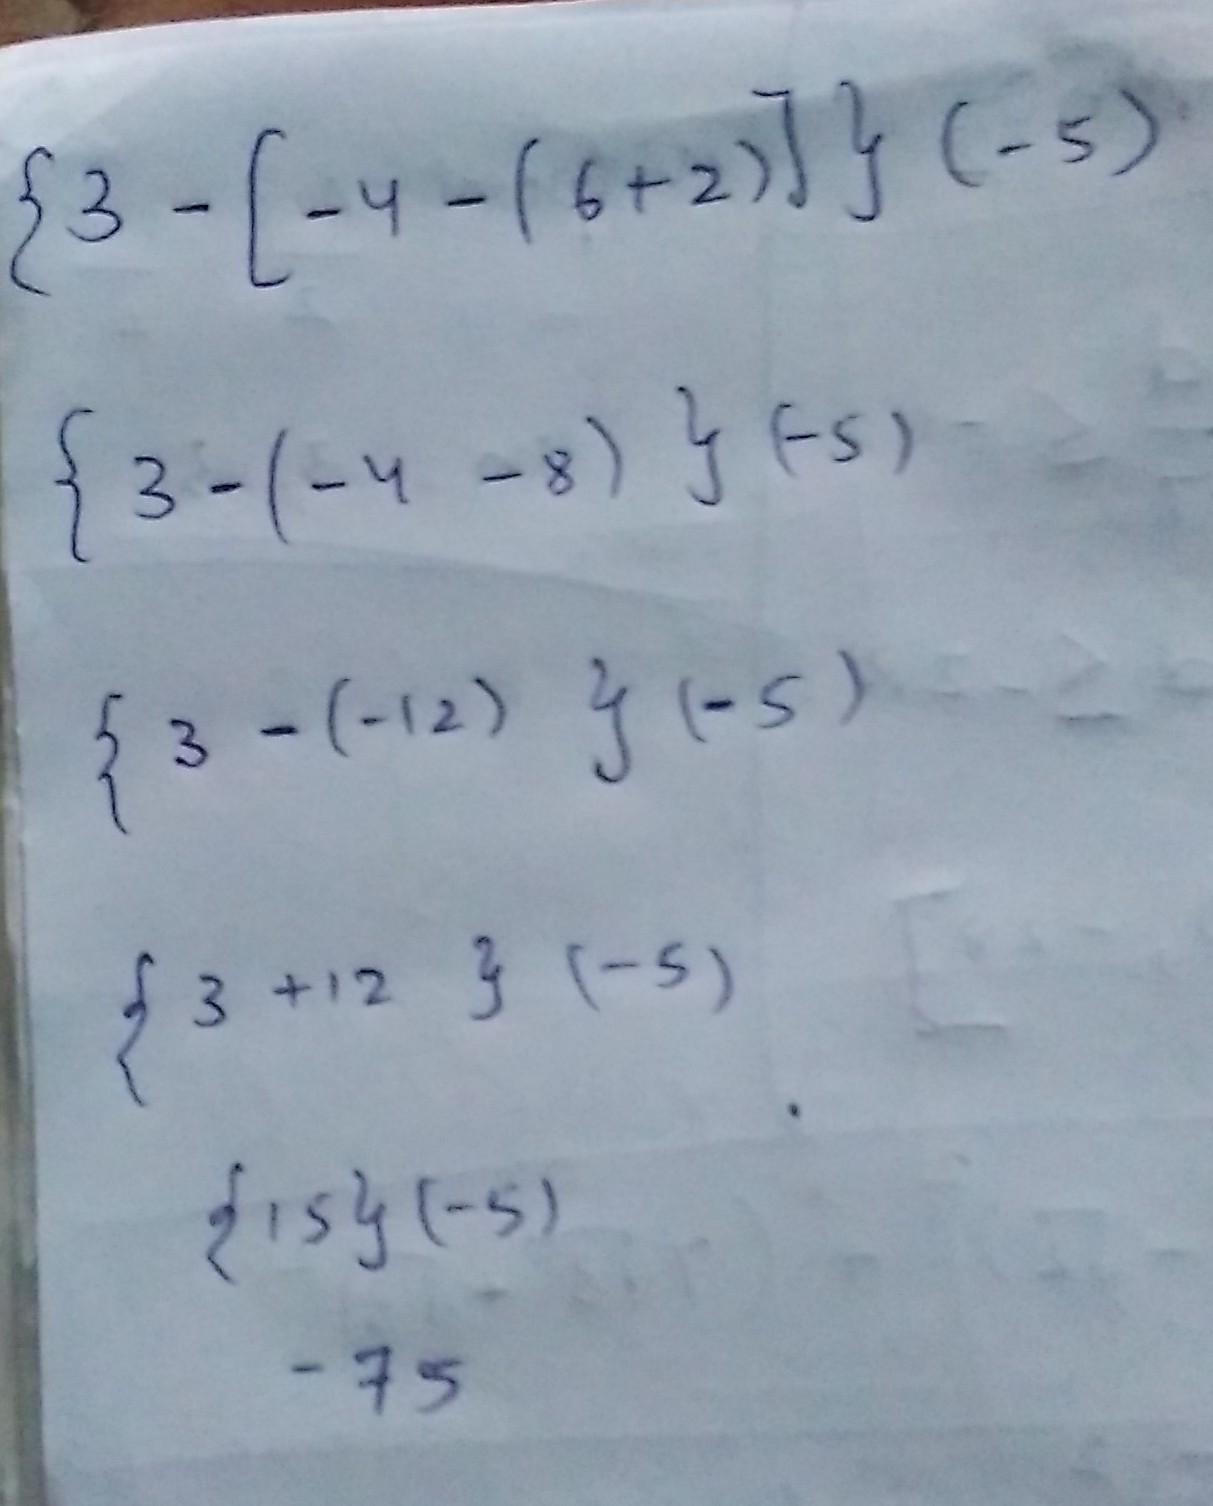 {3 - [-4 - (6+2)]} (-5)
{3 - (-4 -8) } (-5)
{3 - (-12) } (-5)
{3 +12 } (-5)
{15} (-5)
-75